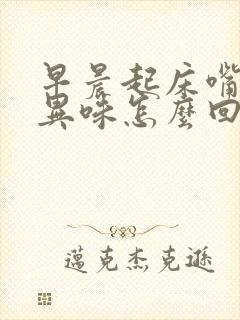 早晨起床嘴
異味怎麼回
邁克杰克遜